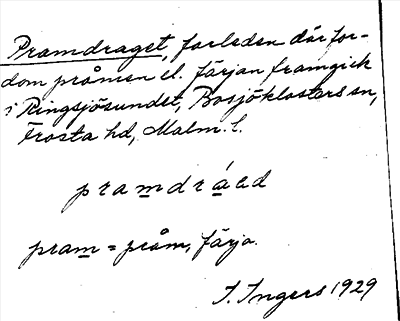 Pramdraget, farleden där for-
dom pråmen el. färjan framgick
i Ringsjösundet, Bosjöklosters sn,
Frosta hd, Malm. l.
pramdráed
pram = pråm, färja.
I. Ingers 1929